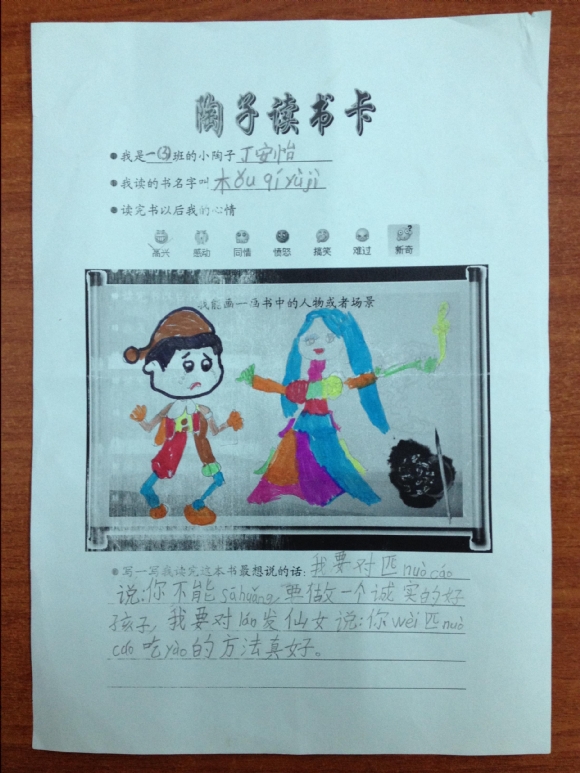 陶子读书卡
我是一(2)班的小陶子 丁安怡
我读的书名字叫 木ǒu qí yù jì
读完书以后我的心情
高兴 感动 同情 愤怒 搞笑 难过 新奇
我能画一画书中的人物或者场景
写一写我读完这本书最想说的话:我要对匹nuò cáo
说:你不能sā huǎng,要做一个诚实的好
孩子,我要对lán发仙女说:你wèi匹nuò
cáo吃yào的方法真好。